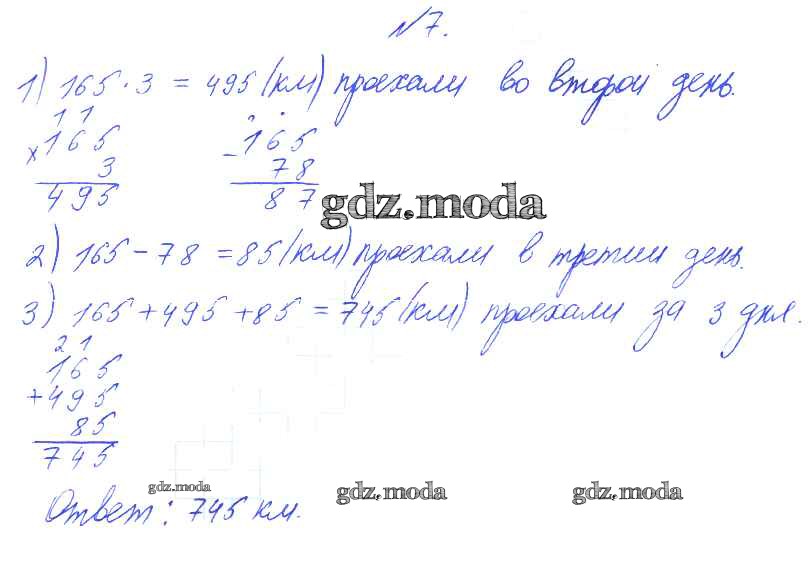 №7.
1) 165 · 3 = 495 (км) проехали во второй день.
1 1
×165
3
495
-165
78
87
gdz.moda
2) 165 - 78 = 85 (км) проехали в третий день.
3) 165 + 495 + 85 = 745 (км) проехали за 3 дня.
2 1
165
+495
85
745
gdz.moda
gdz.moda
gdz.moda
Ответ: 745 км.